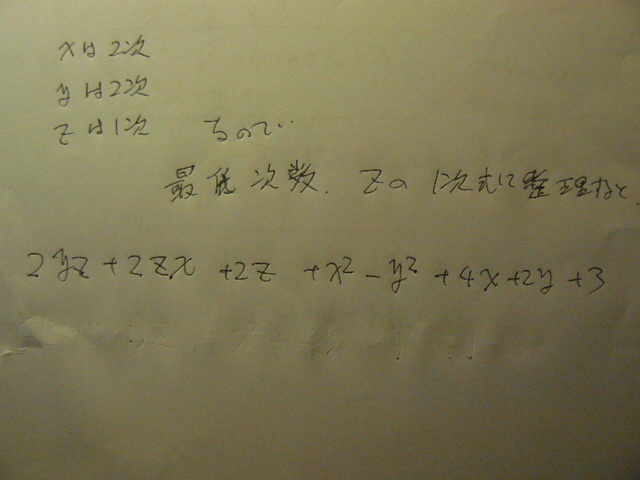 xは2次
yは2次
zは1次 るので‥
最低次数. zの1次式に整理すると
2yz+2zx+2z+x²-y²+4x+2y+3